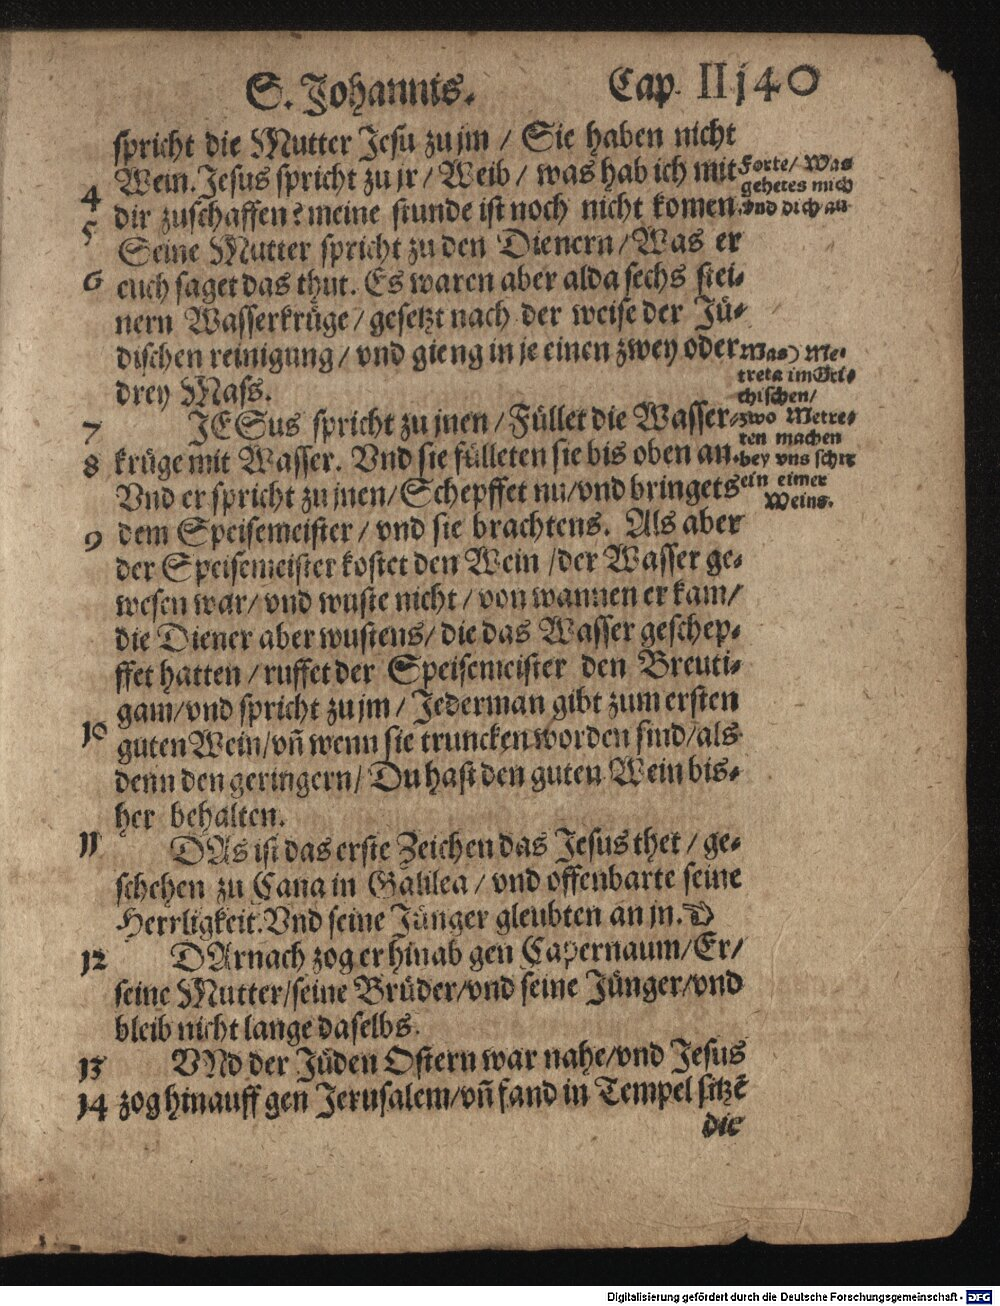 S. Johannis. Cap. II 140
spricht die Mutter Jesu zu jm / Sie haben nicht
4 Wein. Jesus spricht zu jr / Weib / was hab ich mit
dir zuschaffen? meine stunde ist noch nicht komen.
5 Seine Mutter spricht zu den Dienern / Was er
6 euch saget das thut. Es waren aber alda sechs stei-
nern Wasserkrüge / gesetzt nach der weise der Jü-
dischen reinigung / vnd gieng in je einen zwey oder
drey Mass.
Forte / Was
gehetes mich
vnd dich an
7 JESus spricht zu jnen / Füllet die Wasser-
8 krüge mit Wasser. Vnd sie fülleten sie bis oben an.
Vnd er spricht zu jnen / Schepffet nu / vnd bringets
9 dem Speisemeister / vnd sie brachtens. Als aber
der Speisemeister kostet den Wein / der Wasser ge-
wesen war / vnd wuste nicht / von wannen er kam /
die Diener aber wustens / die das Wasser geschep-
ffet hatten / ruffet der Speisemeister den Breuti-
gam / vnd spricht zu jm / Jederman gibt zum ersten
10 guten Wein / vñ wenn sie truncken worden sind / als
denn den geringern / Du hast den guten Wein bis-
her behalten.
Mas) Me-
treta im Gri-
chischen /
zwo Metre-
ten machen
bey vns schir
ein eimer
Weins.
11 DAs ist das erste Zeichen das Jesus thet / ge-
schehen zu Cana in Galilea / vnd offenbarte seine
Herrligkeit. Vnd seine Jünger gleubten an jn.
12 DArnach zog er hinab gen Capernaum / Er /
seine Mutter / seine Brüder / vnd seine Jünger / vnd
bleib nicht lange daselbs.
13 VNd der Jüden Ostern war nahe / vnd Jesus
14 zog hinauff gen Jerusalem / vñ fand in Tempel sitzẽ
die
Digitalisierung gefördert durch die Deutsche Forschungsgemeinschaft - DFG